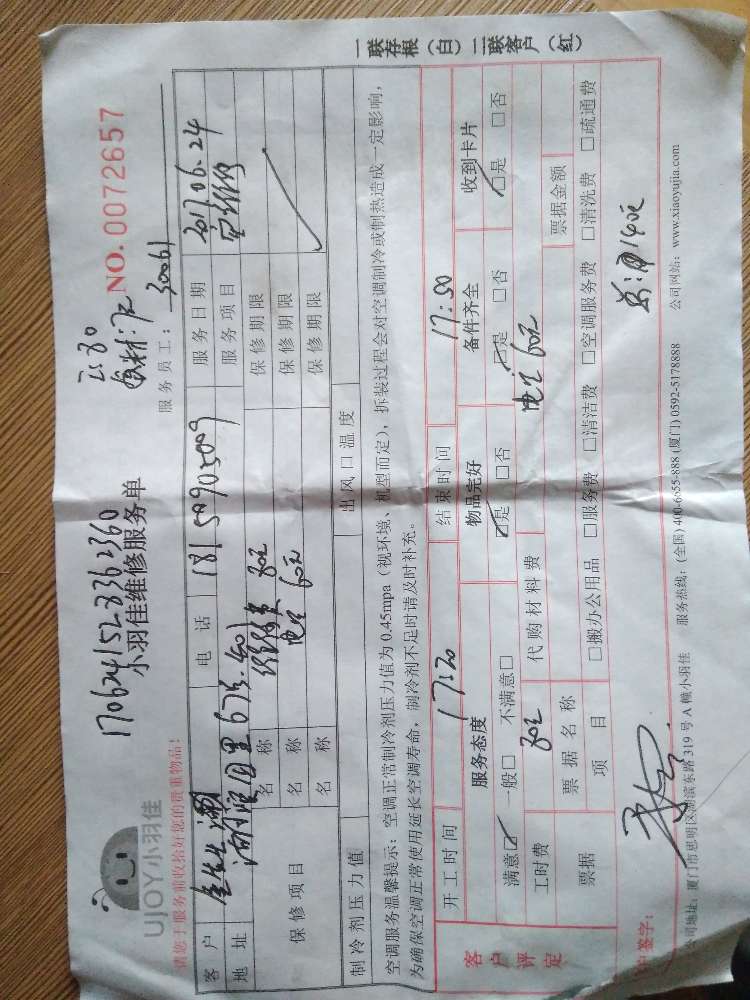 一联存根（白）二联客户（红）
17062415283362360
NO. 0072657
UJOY小羽佳
小羽佳维修服务单
请您于服务前收拾好您的贵重物品！
服务员工： 30061
客户
电话 18150905009
服务日期 2017.06.24
地址 675-401
服务项目 空维修
保修项目
名称 80元
保修期限
名称 电容 60元
保修期限
名称
保修期限
制冷剂压力值
出风口温度
空调服务温馨提示：空调正常制冷剂压力值为0.45mpa（视环境、机型而定），拆装过程会对空调制冷或制热造成一定影响，
为确保空调正常使用延长空调寿命，制冷剂不足时请及时补充。
开工时间 17:20
结束时间 17:50
客户评定
服务态度
物品完好
备件齐全
收到卡片
满意☑ 一般□ 不满意□
☑是 □否
☑是 □否
☑是 □否
工时费 80元
代购材料费 电容 60元
票据
票据名称
票据金额
项目
□搬办公用品 □服务费 □清洁费 □空调服务费 □清洗费 □疏通费
户签字：
140元
公司地址：厦门市思明区湖滨东路319号A幢小羽佳
服务热线：(全国) 400-6655-888 (厦门) 0592-5178888
公司网站：www.xiaoyujia.com